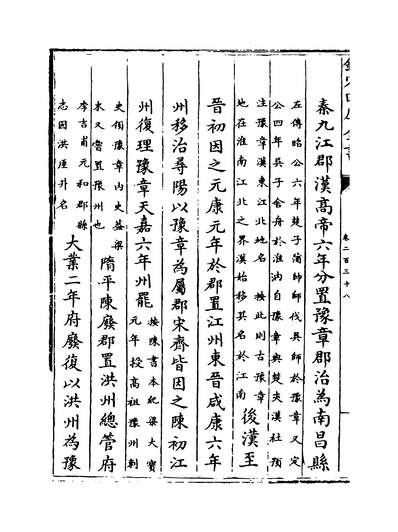 秦九江郡漢高帝六年分置豫章郡治為南昌縣
左傳昭公六年楚子蕩師師伐吳師於豫章又定
公四年吳子舍舟於淮汭自豫章與楚夾漢杜預
注豫章漢東江北地名 按此則古豫章
地在淮南江北之界漢始移其名於江南
後漢至
晉初因之元康元年於郡置江州東晉咸康六年
州移治尋陽以豫章為屬郡宋齊皆因之陳初江
州復理豫章天嘉六年州罷
按陳書本紀梁大寶
元年授高祖豫州刺
史領豫章內史蓋梁
末又嘗置豫州也
隋平陳廢郡置洪州總管府
李吉甫元和郡縣
志因洪厓井名
大業二年府廢復以洪州為豫
卷二百三十八